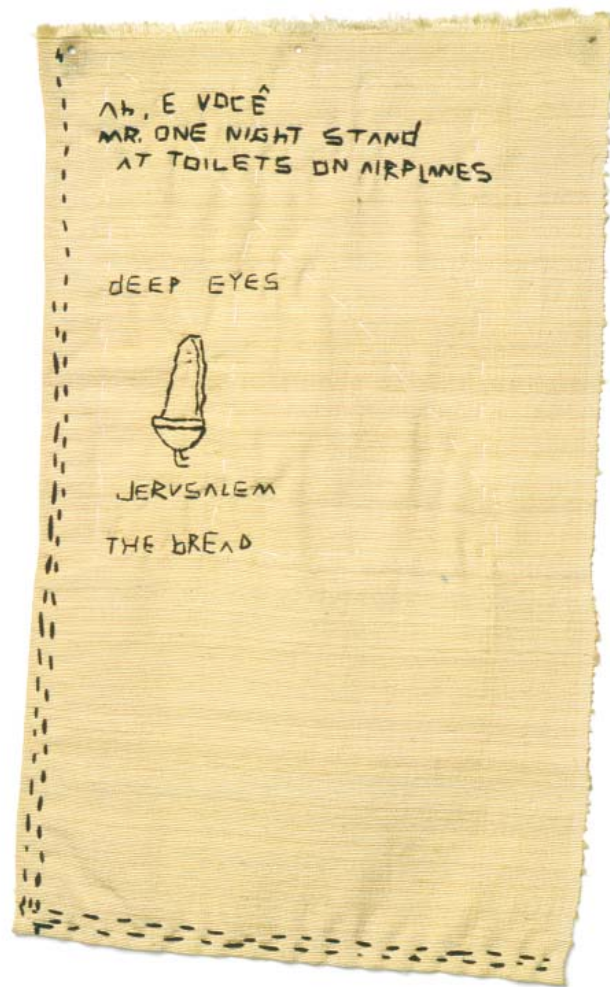 Ah, E VOCÊ
MR. ONE NIGHT STAND
AT TOILETS ON AIRPLANES
dEEP EYES
JERUSALEM
THE bREAD